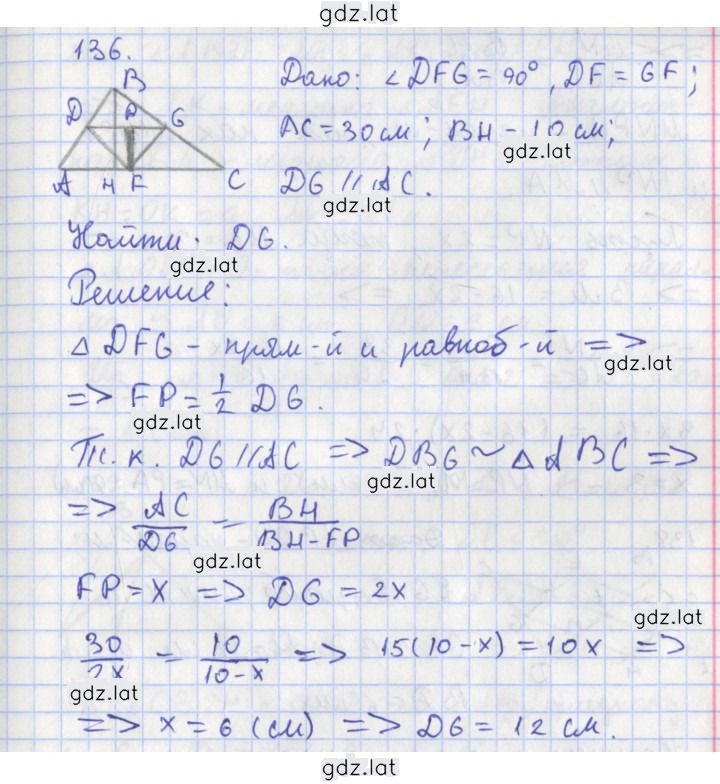 gdz.lat
136.
Дано: ∠DFG = 90°, DF = GF;
B
D P G
A H F C
AC = 30 см; BH - 10 см;
gdz.lat
DG // AC.
gdz.lat
Найти: DG.
gdz.lat
Решение:
△ DFG - прям-й и равноб-й =>
gdz.lat
=> FP = 1/2 DG.
gdz.lat
Т.к. DG // AC => DBG ~ △ ABC =>
gdz.lat
=> AC/DG = BH/BH-FP
gdz.lat
FP = x => DG = 2x
gdz.lat
30/2x = 10/10-x => 15(10-x) = 10x =>
gdz.lat
=> x = 6 (см) => DG = 12 см.
gdz.lat